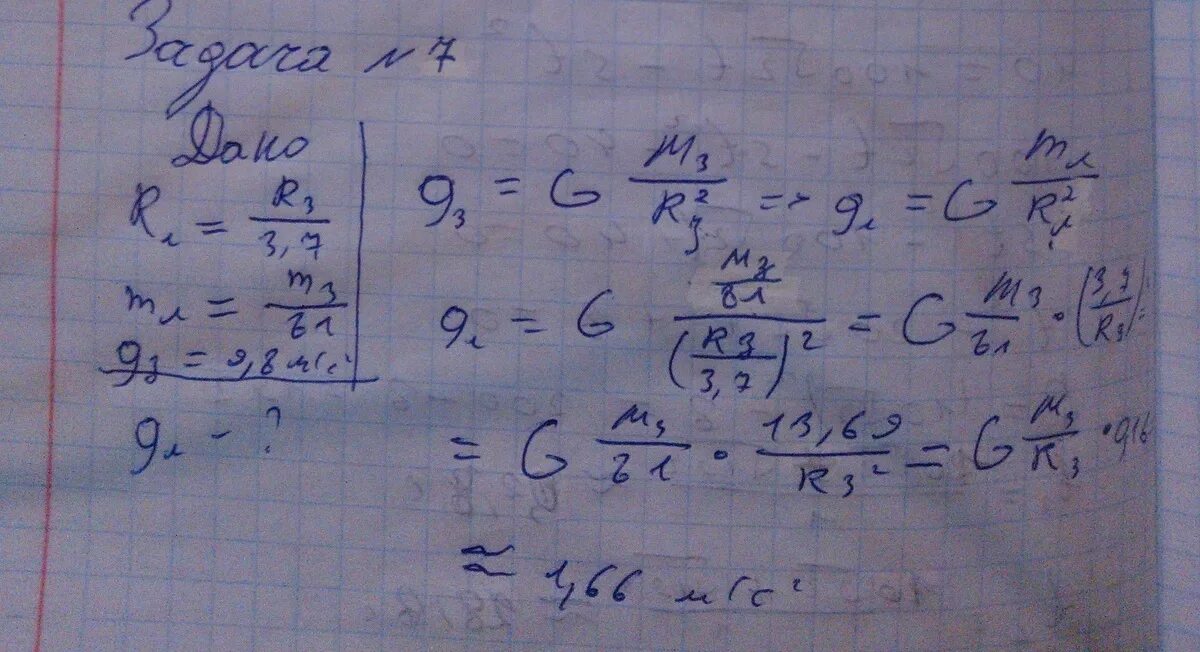 Задача №7
Дано
Rл = Rз / 3,7
mл = mз / 81
gз = 9,8 м/с²
gл - ?
gз = G Mз / Rз² => gл = G mл / Rл²
gл = G (Mз / 81) / (Rз / 3,7)² = G mз / 81 · (3,7 / Rз)
= G Mз / 81 · 13,69 / Rз² = G Mз / Rз · 0,16
≈ 1,66 м/с²